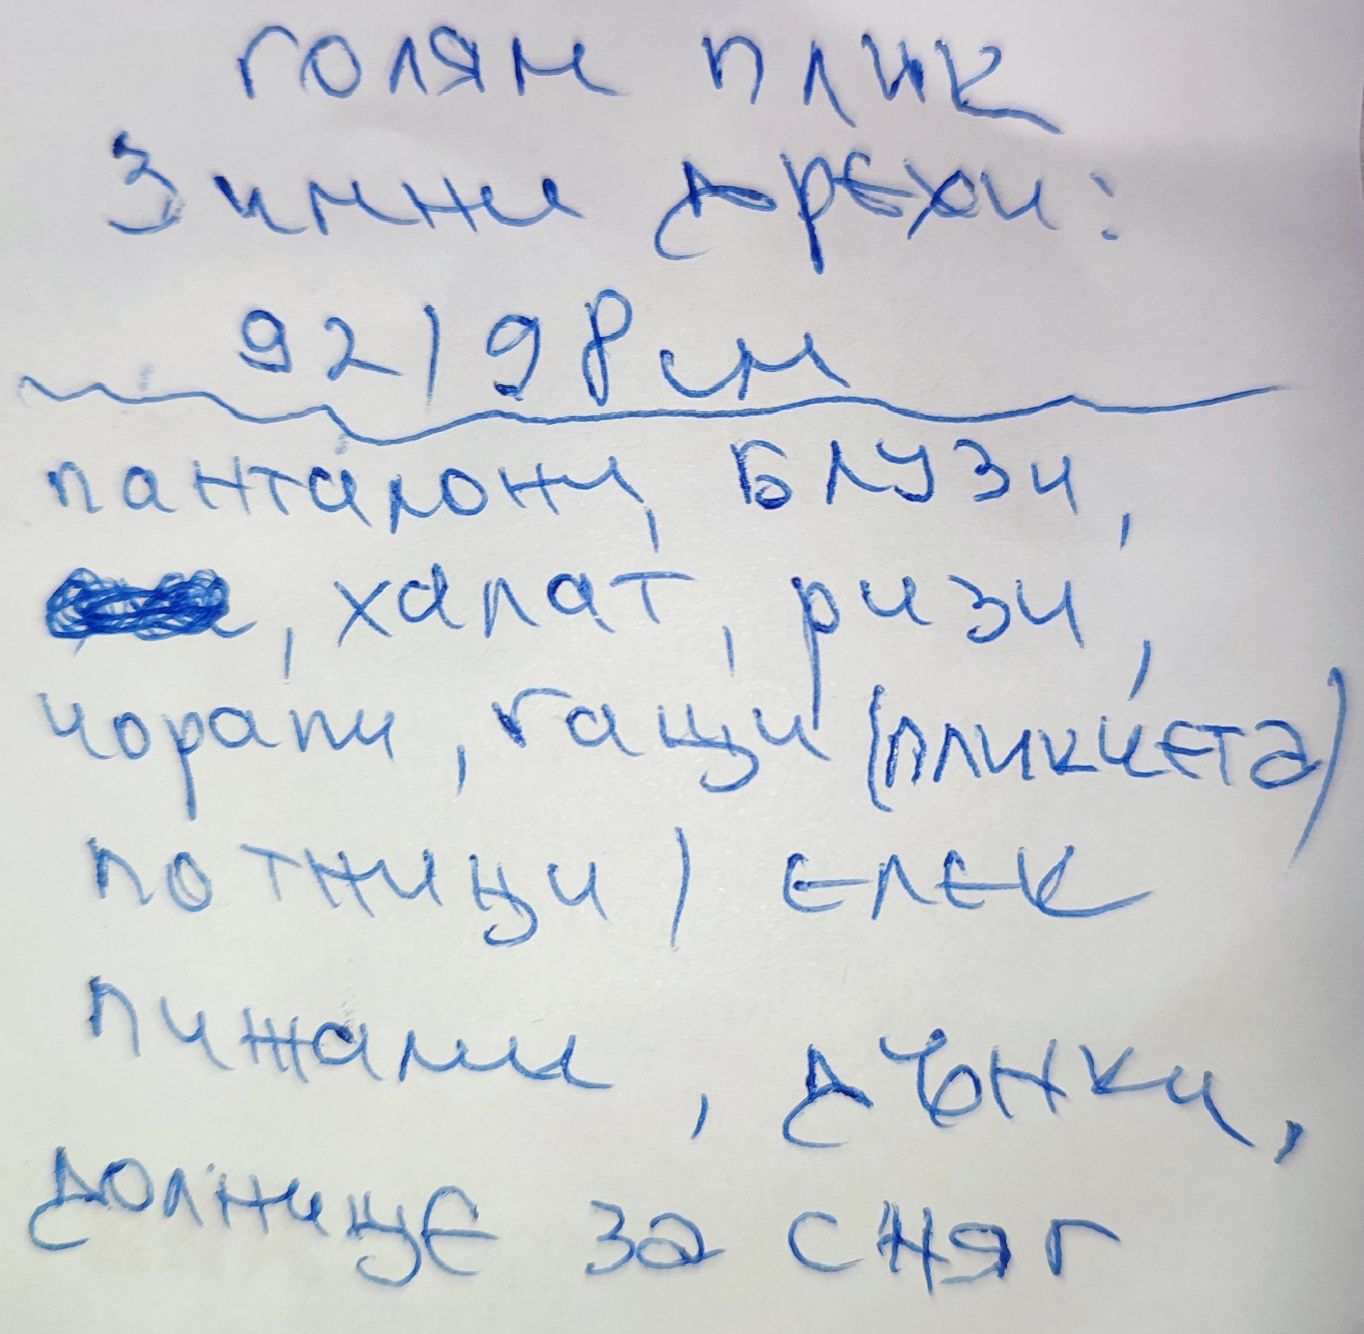 голям плик
Зимни дрехи:
92/98см
панталони, Блузи,
, халат, ризи,
чорапи, гащи (пликчета)
потници / елек
пижами, дънки,
долнище за сняг